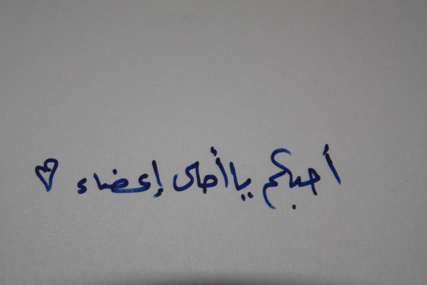 أحبكم يا أحلى إعضاء ♡